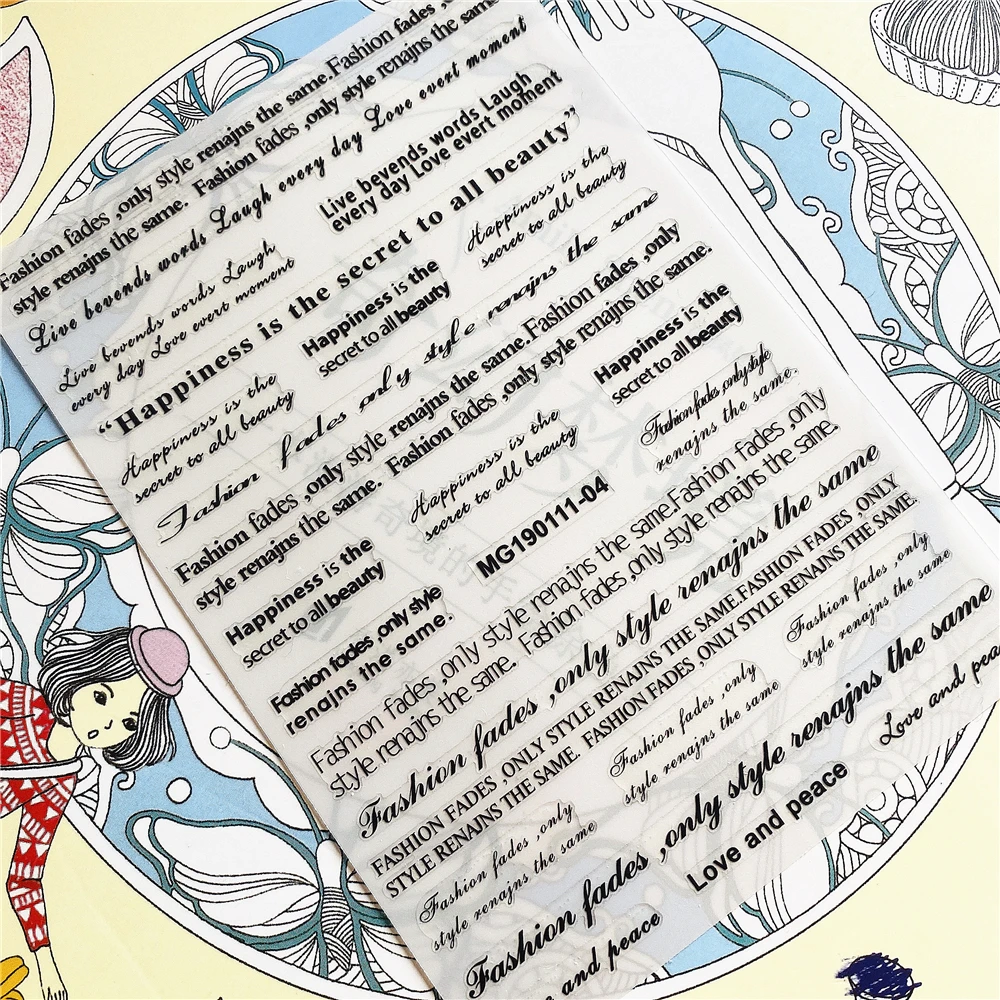 Fashion fades ,only style renajns the same.Fashion fades ,
style renajns the same. Fashion fades ,only style renajns the same
Live bevends words Laugh every day Love evert moment
Live bevends words Laugh
every day Love evert moment
Live bevends words Laugh
every day Love evert moment
“Happiness is the secret to all beauty”
Happiness is the
secret to all beauty
Happiness is the
secret to all beauty
Happiness is the
secret to all beauty
Fashion fades only style renajns the same
Happiness is the
secret to all beauty
Fashion fades ,only style renajns the same.Fashion fades ,only
style renajns the same. Fashion fades ,only style renajns the same.
Happiness is the
secret to all beauty
Fashion fades ,only style
renajns the same.
Happiness is the
secret to all beauty
MG190111-04
Fashion fades ,only style
renajns the same.
Fashion fades ,only style renajns the same.Fashion fades ,only
style renajns the same. Fashion fades ,only style renajns the same.
Fashion fades ,only style renajns the same
FASHION FADES ,ONLY STYLE RENAINS THE SAME.FASHION FADES ,ONLY
STYLE RENAINS THE SAME. FASHION FADES ,ONLY STYLE RENAINS THE SAME.
Fashion fades ,only
style renajns the same
Fashion fades ,only
style renajns the same
Fashion fades ,only
style renajns the same
Fashion fades ,only style renajns the same
Love and peace
Love and pea
and peace